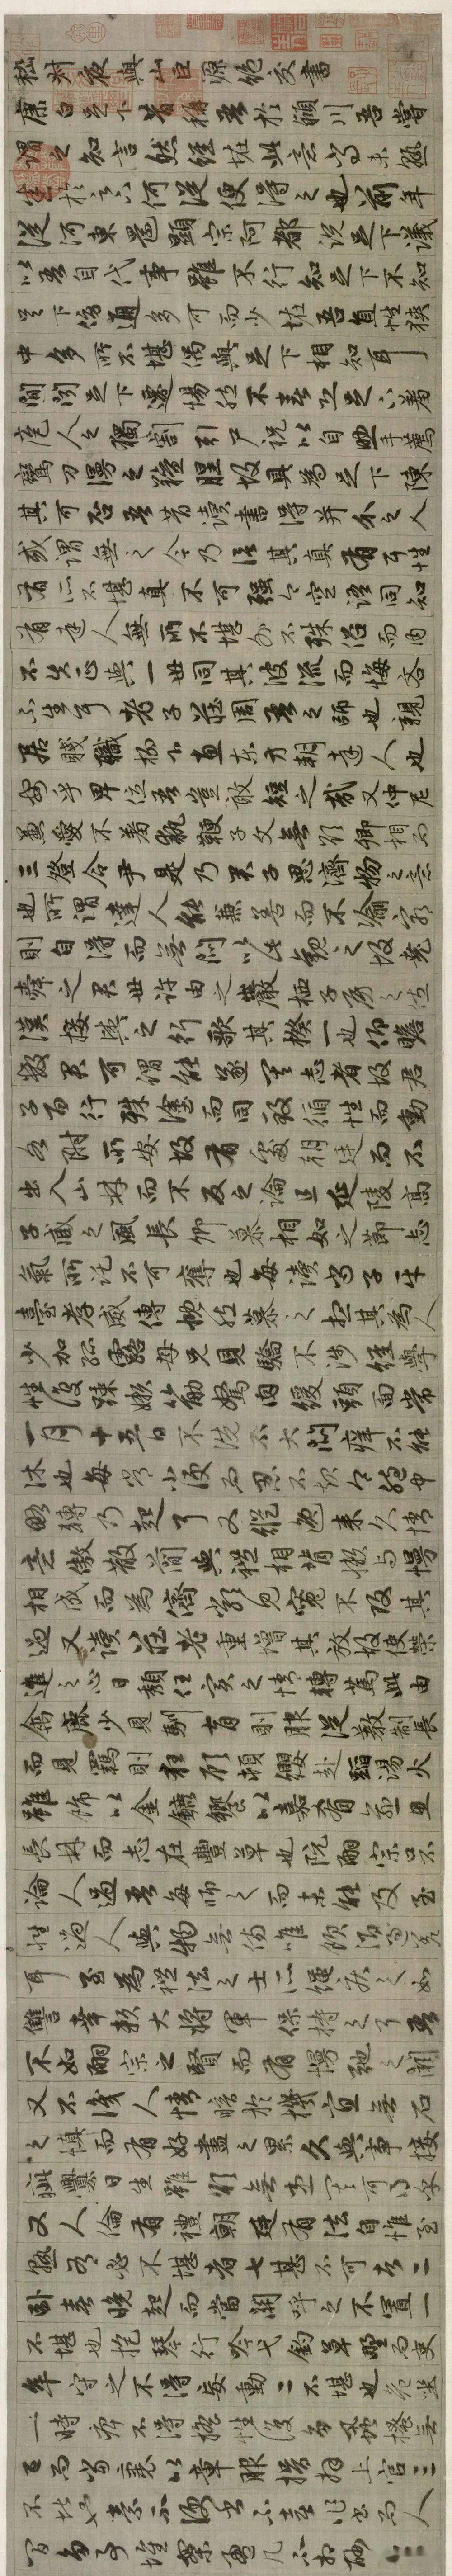 嵇叔夜與山巨源絕交書
康白足下昔稱吾於潁川吾嘗
謂之知言然經恠此意尚未熟
悉於足下何從便得之也前年
從河東還顯宗阿都說足下議
以吾自代事雖不行知足下不知
足下傍通多可而少恠吾直性狹
中多所不堪偶與足下相知耳
間聞足下遷惕然不喜恐足下羞
庖人之獨割引尸祝以自助手薦
鸞刀漫之羶腥故具為足下陳
其可否吾昔讀書得并介之人
或謂無之今乃信其真有耳性
有所不堪真不可強今空語同知
有達人無所不堪外不殊俗而內
不失正與一世同其波流而悔吝
不生耳老子莊周吾之師也親
居賤職柳下惠東方朔達人也
安乎卑位吾豈敢短之哉又仲尼
兼愛不羞執鞭子文無欲卿相而
三登令尹是乃君子思濟物之意
也所謂達人能兼善而不渝窮
則自得而無悶以此觀之故堯
舜之君世許由之巖栖子房之佐
漢接輿之行歌其揆一也仰瞻
數君可謂能遂其志者故君
子百行殊塗而同致循性而動
各附所安故有處朝廷而不
出入山林而不反之論且延陵高
子臧之風長卿慕相如之節志
氣所託不可奪也每讀尚子平
臺孝威傳慨然慕之想其為人
少加孤露母兄見驕不涉經學
性復疎嬾筋駑肉緩頭面常
一月十五日不洗不大悶癢不能
沐也每常小便而忍不起令胞中
略轉乃起耳又縱逸來久情
意傲散簡與禮相背懶與慢
相成而為儕類見寬不攻其
過又讀莊老重增其放故使榮
進之心日頹任實之情轉篤此由
禽鹿少見馴育則服從教制長
而見羈則狂顧頓纓赴蹈湯火
雖飾以金鑣饗以嘉肴愈思
長林而志在豐草也阮嗣宗口不
論人過吾每師之而未能及至
性過人與物無傷唯飲酒過差
耳至為禮法之士所繩疾之如
讎幸賴大將軍保持之耳吾
不如嗣宗之賢而有慢弛之闕
又不識人情暗於機宜無石
之慎而有好盡之累久與事接
疵釁日生雖欲無患其可得乎
又人倫有禮朝廷有法自惟至
熟有必不堪者七甚不可者二
臥喜晚起而當關呼之不置一
不堪也抱琴行吟弋釣草野而吏
卒守之不得妄動二不堪也危坐
一時痺不得搖性復多虱把搔無
已而當裹以章服揖拜上官三
不堪也素不便書不喜作書而人
間多事堆案盈几不相酬